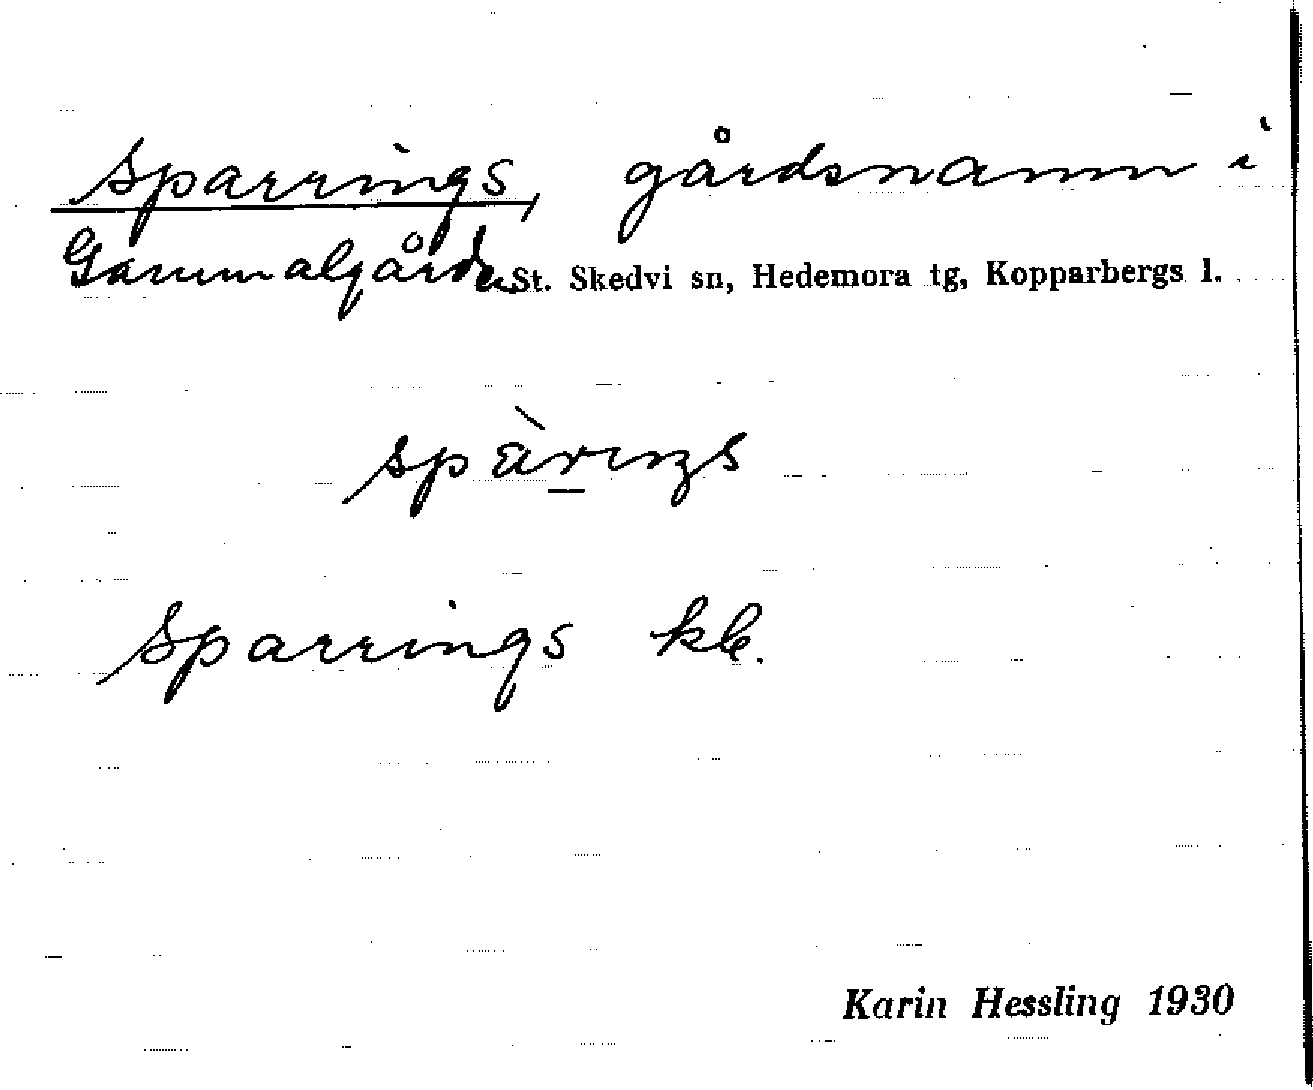 sparrings, gårdsnamn i
Gammalgården St. Skedvi sn, Hedemora tg, Kopparbergs l.
sparrings kb.
Karin Hessling 1930